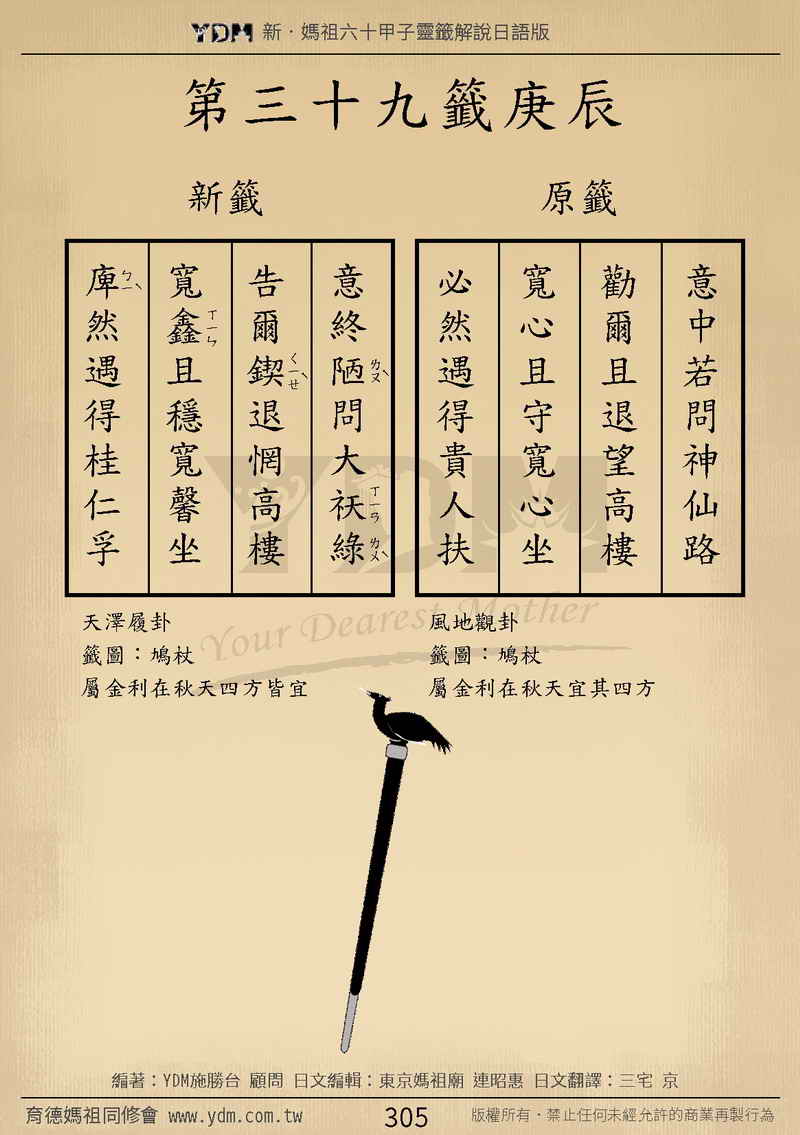 YDM 新．媽祖六十甲子靈籤解說日語版
第三十九籤庚辰
原籤
意中若問神仙路
勸爾且退望高樓
寬心且守寬心坐
必然遇得貴人扶
風地觀卦
籤圖：鳩杖
屬金利在秋天宜其四方
新籤
意終陋ㄌㄡˋ問大祆ㄒㄧㄢ綠ㄌㄨˋ
告爾鍥ㄑㄧㄝˋ退惘高樓
寬鑫ㄒㄧㄣ且穩寬馨坐
庳ㄅㄧˋ然遇得桂仁孚
天澤履卦
籤圖：鳩杖
屬金利在秋天四方皆宜
YDM
Your Dearest Mother
編著：YDM施勝台 顧問 日文編輯：東京媽祖廟 連昭惠 日文翻譯：三宅 京
育德媽祖同修會 www.ydm.com.tw
305
版權所有．禁止任何未經允許的商業再製行為